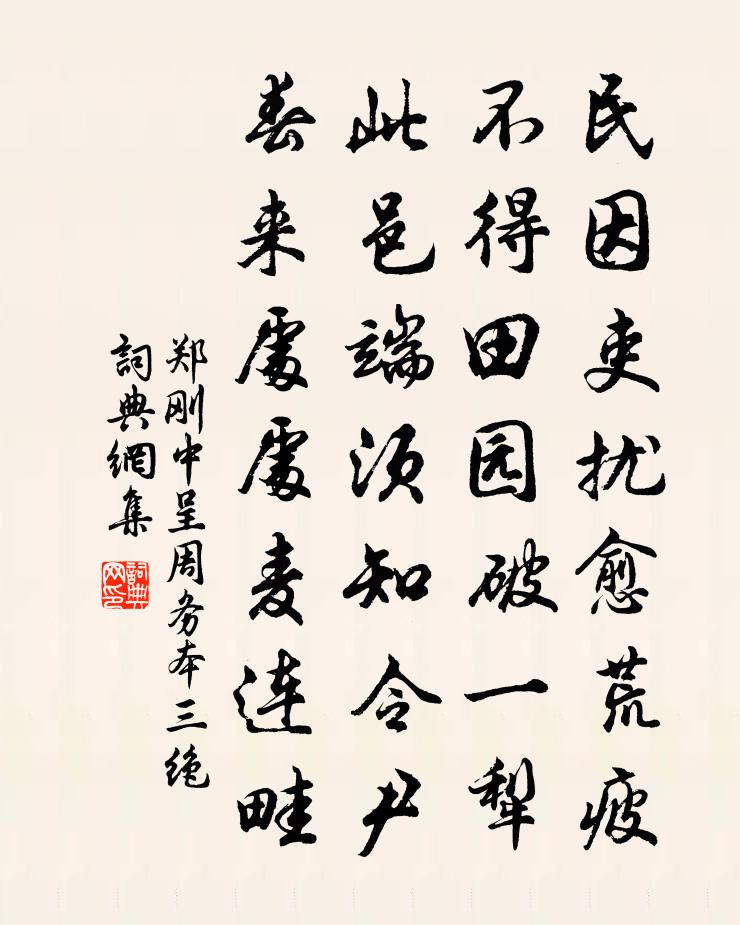 民因吏扰愈荒疲
不得田园破一犁
此邑端须知令尹
春来處處麦连畦
郑刚中呈周务本三绝
詞典網集
詞典网印